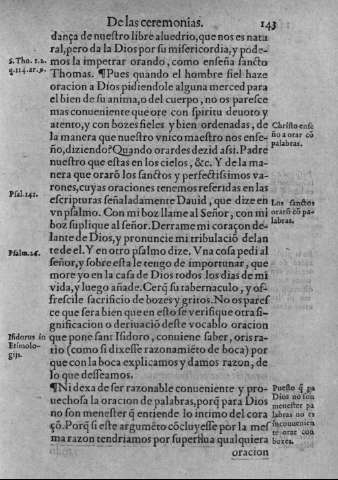 De las ceremonias. 143
dança de nuestro libre aluedrio, que nos es natu
ral, pero da la Dios por su misericordia, y pode-
mos la impetrar orando, como enseña sancto
Thomas. ¶Pues quando el hombre fiel haze
oracion a Dios pidiendole alguna merced para
el bien de su anima, o del cuerpo, no os paresce
mas conueniente que ore con spiritu deuoto y
atento, y con bozes fieles y bien ordenadas, de
la manera que nuestro vnico maestro nos ense-
ño, diziendo? Quando orardes dezid assi. Padre
nuestro que estas en los cielos, &c. Y de la mane-
ra que orarõ los sanctos y perfectissimos va-
rones, cuyas oraciones tenemos referidas en las
escripturas señaladamente Dauid, que dize en
vn psalmo. Con mi boz llame al Señor, con mi
boz suplique al señor. Derrame mi coraçon de-
lante de Dios, y pronuncie mi tribulació delan
te de el. Y en otro psalmo dize. Vna cosa pedi al
señor, y sobre esta le tengo de importunar, que
more yo en la casa de Dios todos los dias de mi
vida, y luego añade. Cerq̃ su tabernaculo, y of-
frescile sacrificio de bozes y gritos. No os pares
ce que sera bien que en esto se verifique otra si-
gnificacion o deriuació deste vocablo oracion
que pone sant Isidoro, conuiene saber, oris ra-
rio (como si dixesse razonamiẽto de boca) por
que con la boca explicamos y damos razon, de
lo que desseamos.
¶Ni dexa de ser razonable conueniente y pro-
uechosa la oracion de palabras, porq̃ para Dios
no son menester q̃ entiende lo intimo del cora
çõ. Porq̃ si este argumẽto cõcluyesse por la mes
ma razon tendriamos por superflua qualquiera
oracion
S. Tho. 1.2.
q.114.ar.9.
Psal.141.
Psalm.26.
Isidorus in
Etimolo-
gijs.
Christo ense
ño a orar cõ
palabras.
Los sanctos
orarõ cõ pa-
labras.
Puesto q̃ pa
Dios no son
menester pa
labras no es
inconuenien
te orar con
bozes.